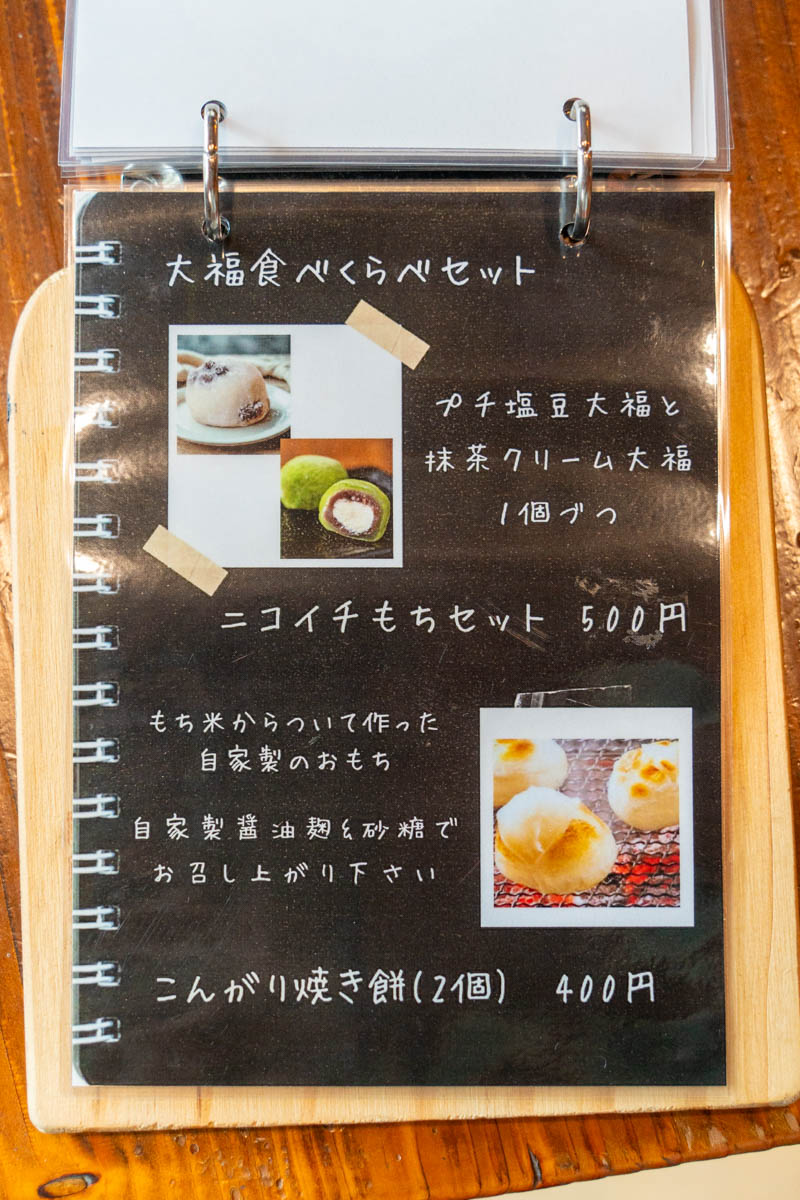 大福食べくらべセット
プチ塩豆大福と
抹茶クリーム大福
1個づつ
ニコイチもちセット 500円
もち米からついて作った
自家製のおもち
自家製醤油麹&砂糖で
お召し上がり下さい
こんがり焼き餅(2個) 400円